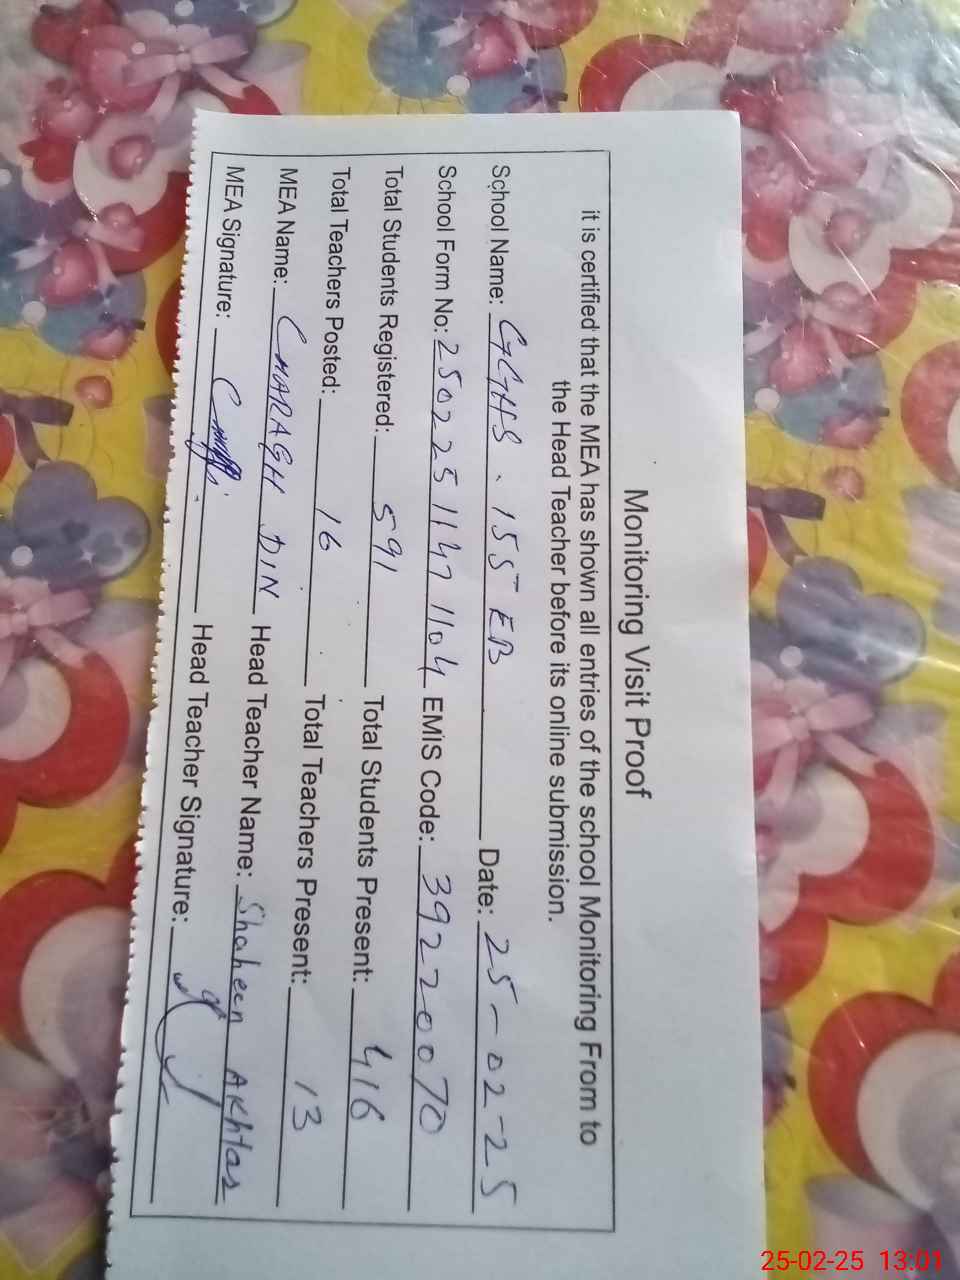 Monitoring Visit Proof
it is certified that the MEA has shown all entries of the school Monitoring From to
the Head Teacher before its online submission.
School Name: GGHS. 155 EB Date: 25-02-25
School Form No: 250225 1147 1104 EMIS Code: 39220070
Total Students Registered: 591 Total Students Present: 416
Total Teachers Posted: 16 Total Teachers Present: 13
MEA Name: CHARAGH DIN Head Teacher Name: Shaheen Akhtar
MEA Signature: Head Teacher Signature:
25-02-25 13:01